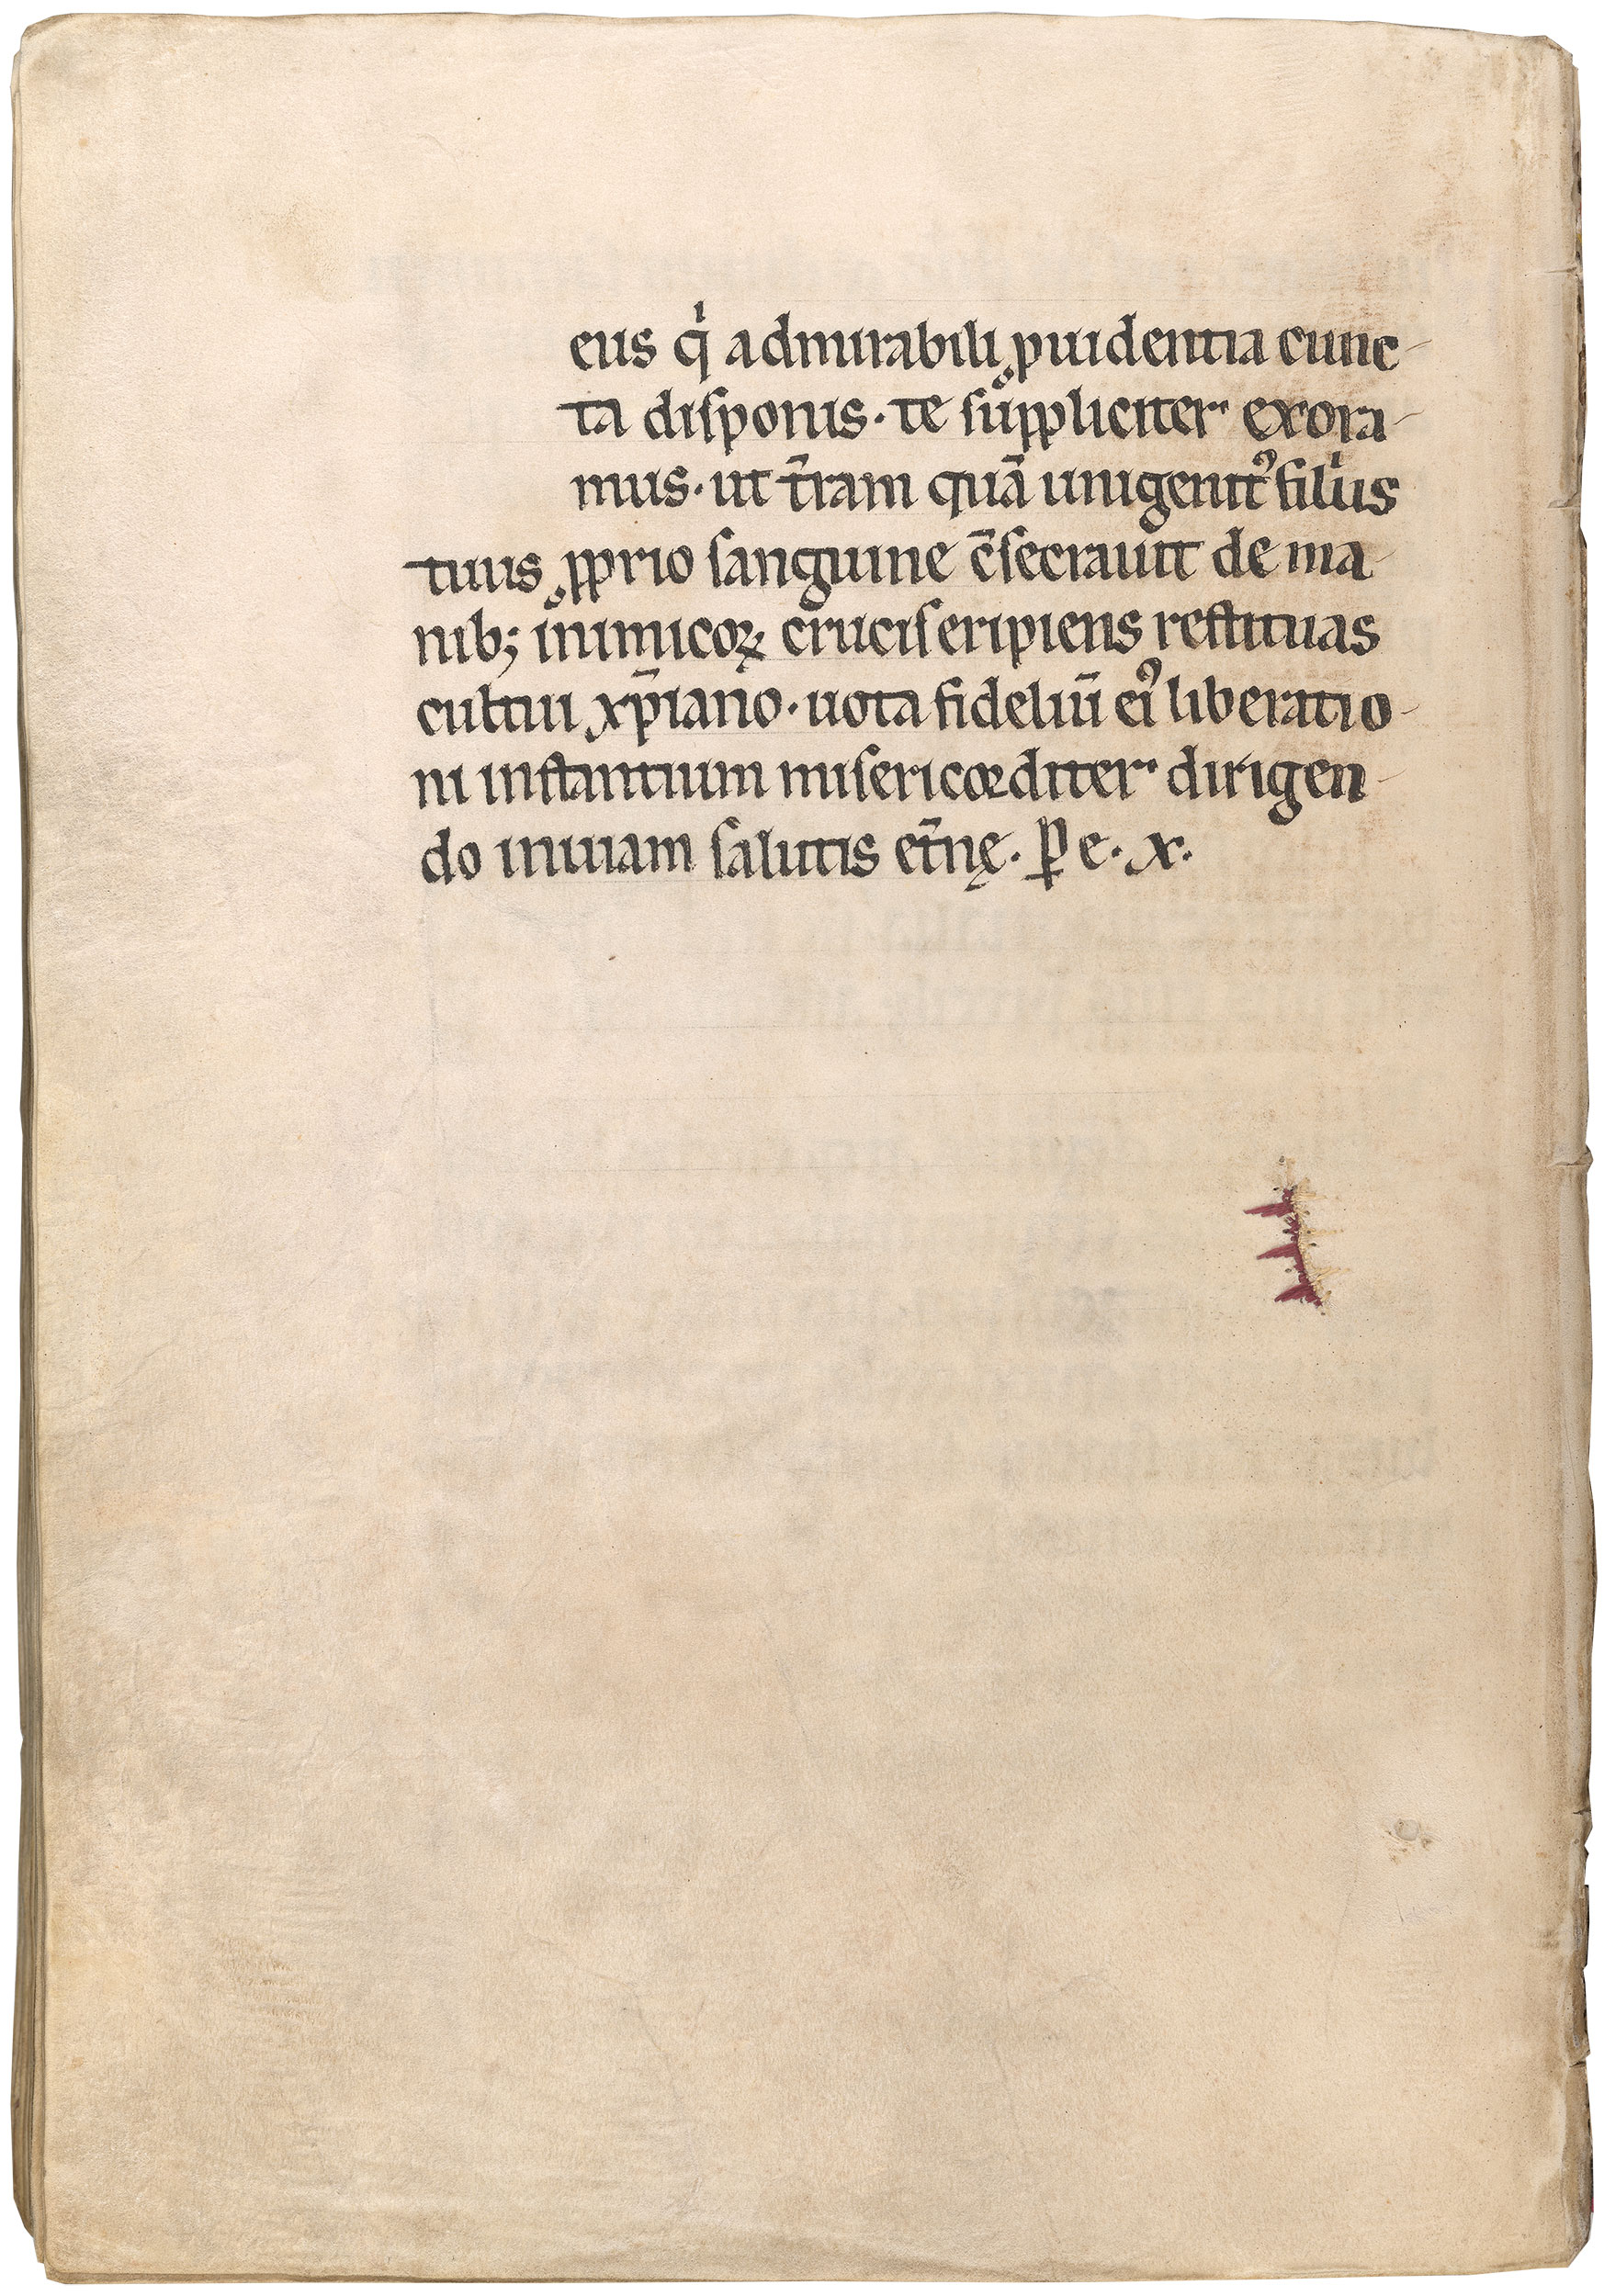 eus qͥ admirabili ꝓuidentia cunc-
ta diſponis· te ſuppliciter exora-
mus· ut t̄ram quā unigenitꝰ filius
tuus ꝓprio ſanguine c̄ſecrauit de ma-
nib; inimicoꝝ cruciſ eripiens reſtituas
cultui xp̄iano· uota fideliū eiꝰ liberatio-
ni inſtantium miſericorditer dirigen-
do in uiam ſalutis et̄nę· ꝑ e· x·